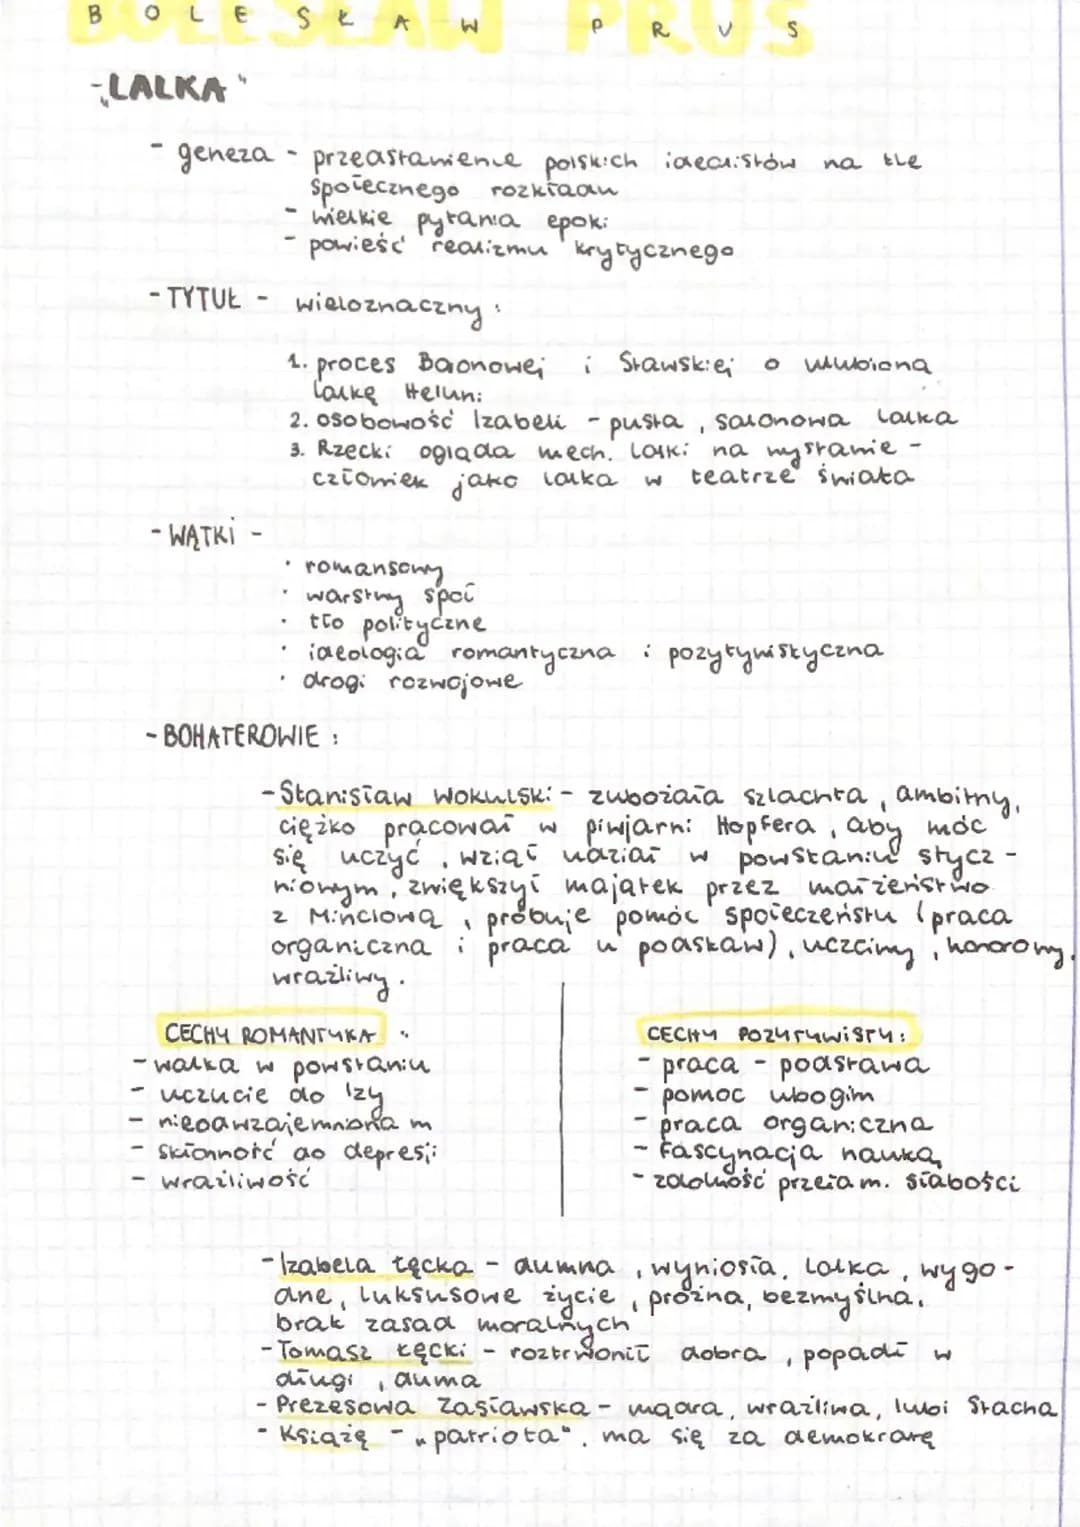 BOLESŁAW PRUS
- „LALKA"
- geneza - przedstawienie polskich idealistów na tle
społecznego rozkładu
- wielkie pytania epoki
- powieść realizmu krytycznego
- TYTUŁ - wieloznaczny:
1. proces Baronowej i Stawskiej o ulubioną
lalkę Heluni
2. osobowość Izabeli - pusta, salonowa lalka
3. Rzecki ogląda mech. lalki na wystawie -
człowiek jako lalka w teatrze świata
- WĄTKI -
· romansowy
· warstwy społ
· tło polityczne
· ideologia romantyczna i pozytywistyczna
· drogi rozwojowe
- BOHATEROWIE:
- Stanisław Wokulski - zubożała szlachta, ambitny,
ciężko pracował w piwjarni Hopfera, aby móc
się uczyć, wziął udział w powstaniu stycz-
niowym, zwiększył majątek przez małżeństwo
z Minclową, próbuje pomóc społeczeństwu (praca
organiczna i praca u podstaw), uczciwy, honorowy,
wrażliwy.
CECHY ROMANTYKA:
- walka w powstaniu
- uczucie do Izy
- nieodwzajemniona m
- skłonność do depresji
- wrażliwość
CECHY POZYTYWISTY:
- praca - podstawa
- pomoc ubogim
- praca organiczna
- fascynacja nauką
- zdolność przełam. słabości
- Izabela Łęcka - dumna, wyniosła, lalka, wygo-
dne, luksusowe życie, próżna, bezmyślna,
brak zasad moralnych
- Tomasz Łęcki - roztrwonił dobra, popadł w
długi, duma
- Prezesowa Zasławska - mądra, wrażliwa, lubi Stacha
- Książę - „patriota", ma się za demokratę